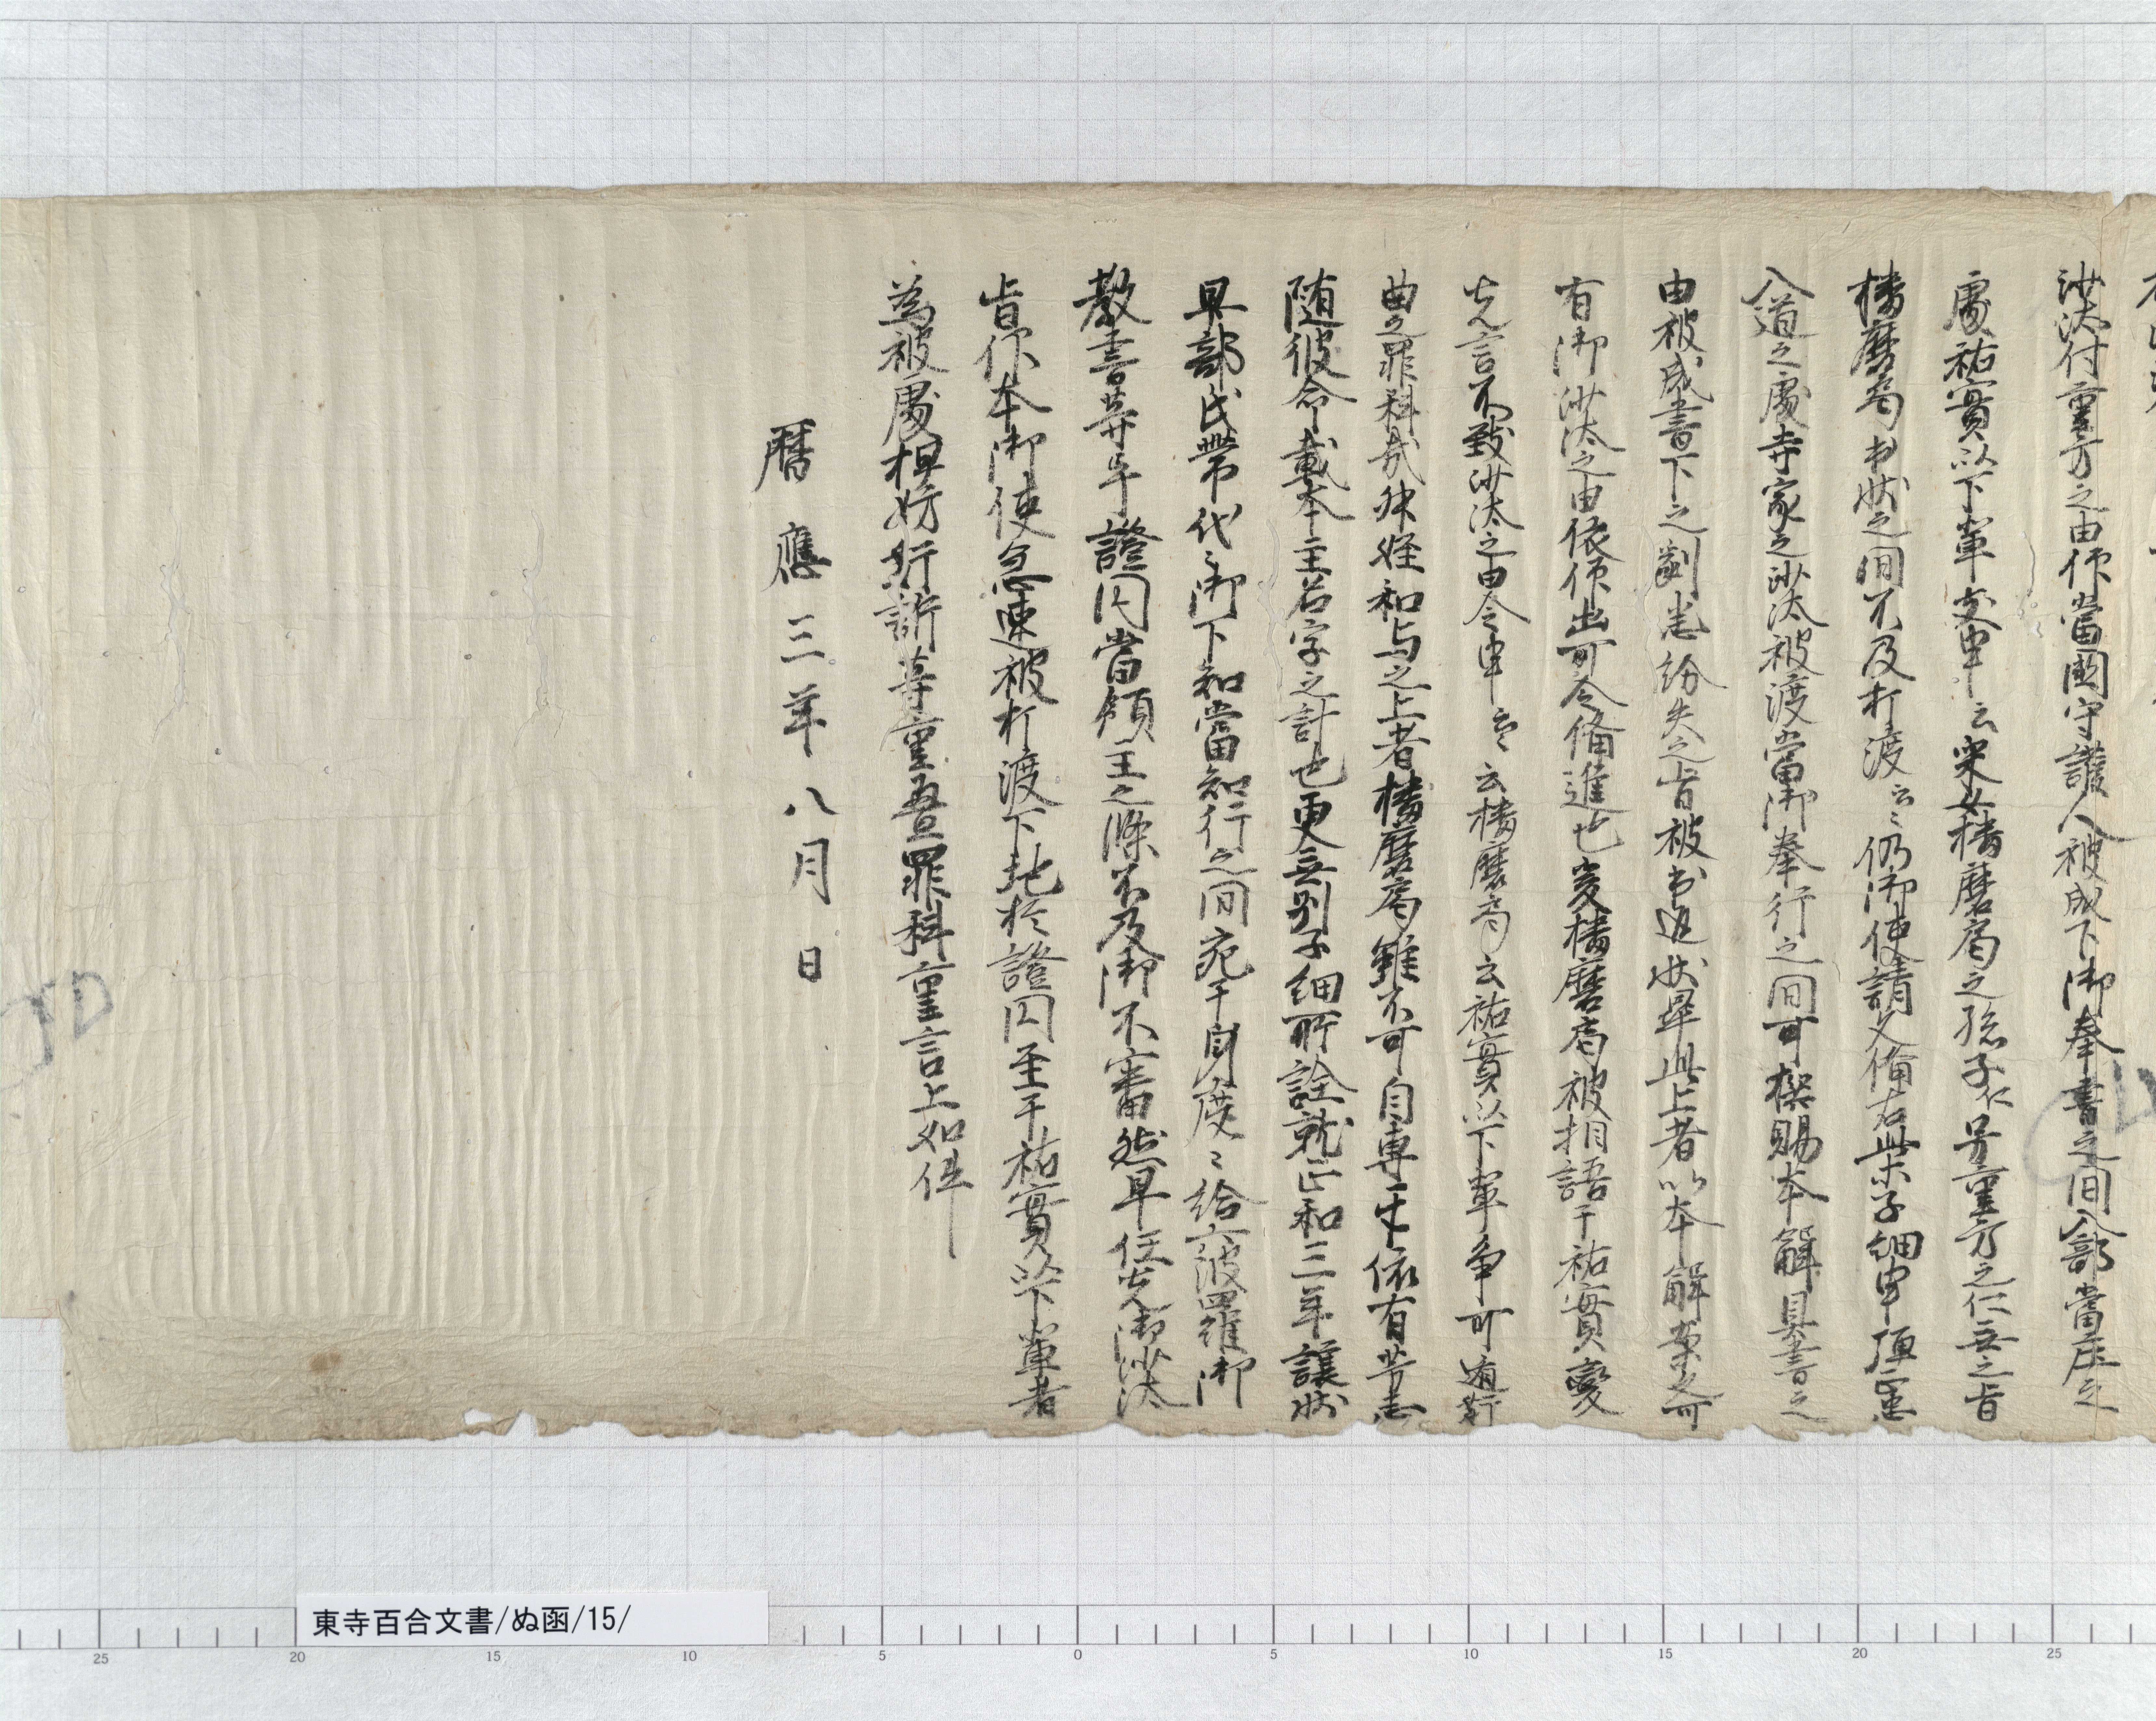 沙汰付重方之由仰當國守護人被成下御奉書之間入部當庄之
處祐實以下輩支申云采女播磨局之孫子仁号重方之仁無之旨
播磨局出状之間不及打渡云々仍御使請文備右此子細申頂惠
入道之處寺家之沙汰被渡當御奉行之間可撰賜本解具書之
由被成書下之剋悉紛失之旨被出返状畢此上者以本解案文可
有御沙汰之由依仰出可令備進也爰播磨局被相語于祐實變
先言不可致沙汰之由令申云々云播磨局云祐實以下輩争可遁奸
曲之罪科哉殊姪和与之上者播磨局雖不可自専于依有芳志
随彼命載本主名字之計也更無別子細所詮就正和三年讓状
早部氏帶代々御下知當知行之間宛于身度々給六波羅御
教書等乎證円當領主之條不及御不審然早任先御沙汰
旨仰本御使急速被打渡下地於證円至于祐實以下輩者
為被處押妨奸訴等重畳罪科重言上如件
暦應三年八月日
東寺百合文書/ぬ函/15/
25
20
15
10
5
0
5
10
15
20
25